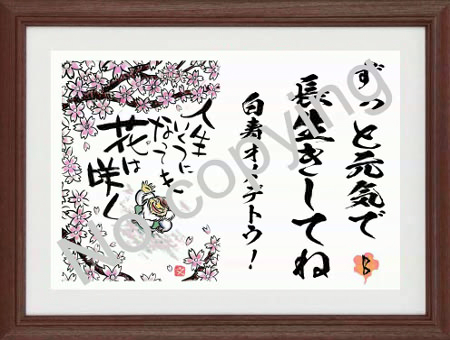 ずっと元気で
長生きしてね
白寿オメデトウ！
人生
いくつに
なっても
花は
咲く
No copying